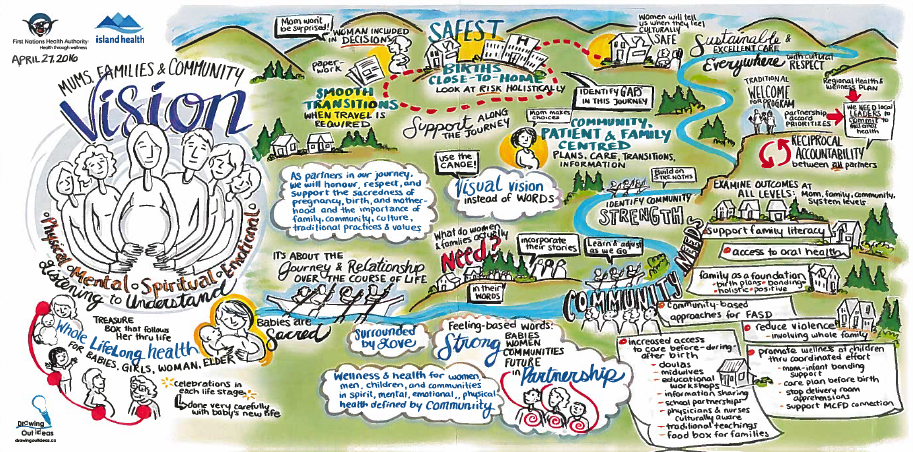 First Nations Health Authority
Health through wellness
island health
APRIL 27, 2016
MUMS, FAMILIES & COMMUNITY
Vision
Physical • Mental • Spiritual • Emotional
listening to Understand
TREASURE
BOX that follows
Her thru life
Whole Lifelong health
FOR BABIES, GIRLS, WOMAN, ELDER
celebrations in
each life stage.
done very carefully
with baby's new life.
Drawing
Out ideas
drawingoutideas.ca
Mom won't
be surprised!
WOMAN INCLUDED
IN DECISIONS
paper
work
SMOOTH
TRANSITIONS
WHEN TRAVEL IS
REQUIRED
SAFEST
H
BIRTHS
CLOSE-TO-HOME
LOOK AT RISK HOLISTICALLY
Women will tell
us when they feel
CULTURALLY
SAFE
Sustainable &
EXCELLENT CARE
Everywhere with cultural
RESPECT
IDENTIFY GAPS
IN THIS JOURNEY
Support ALONG
THE JOURNEY
Mom makes
choices
COMMUNITY,
PATIENT & FAMILY
CENTRED
PLANS, CARE, TRANSITIONS,
INFORMATION
TRADITIONAL
WELCOME
PROGRAM
Regional Health &
Wellness PLAN
partnership
accord
PRIORITIZES
WE NEED local
LEADERS to
COMMIT to
health
RECIPROCAL
ACCOUNTABILITY
between all partners
As partners in our journey.
we will honour, respect, and
support the sacredness of
pregnancy, birth, and mother-
hood and the importance of
family, community, culture,
traditional practices & values
USE the
CANOE!
Visual vision
instead of WORDS
Build on
STRENGTHS
IDENTIFY COMMUNITY
STRENGTH
EXAMINE OUTCOMES AT
ALL LEVELS: Mom, family, community,
System levels
IT'S ABOUT THE
Journey & Relationship
OVER THE COURSE OF LIFE
What do women
& families actually
Need?
incorporate
their stories
in their
WORDS
Learn & adjust
as we Go
COMMUNITY NEEDS
support family literacy
access to oral health
family as a foundation
- birth plans - bonding
- holistic - positive
community-based
approaches for FASD
reduce violence
- involving whole family
Babies are
Sacred
Surrounded
by Love
Feeling-based words:
Strong
BABIES
WOMEN
COMMUNITIES
FUTURE
in Partnership
Wellness & health for women,
men, children, and communities
in spirit, mental, emotional,, physical
health defined by Community
increased access
to care before-during-
after birth
- doulas
- midwives
- educational
workshops
- information sharing
- school partnerships
- physicians & nurses
culturally aware
- traditional teachings
- food box for families
promote wellness of children
thru coordinated effort
- mom-infant bonding
support
- care plan before birth
- stop delivery room
apprehensions
- support MCFD connection